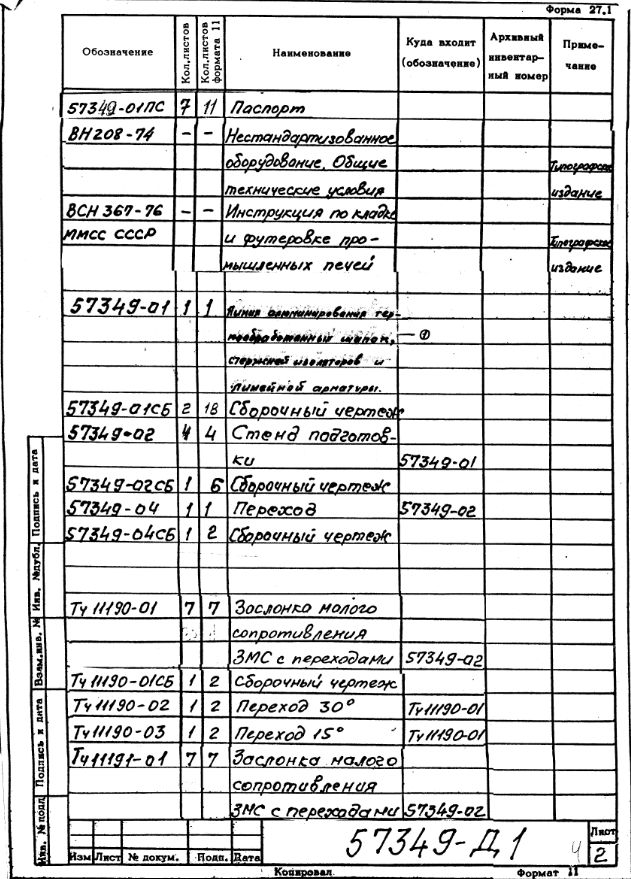 Форма 27.1
Обозначение Кол.листов Кол.листов формата 11 Наименование Куда входит (обозначение) Архивный инвентар-ный номер Приме-чание
57349-01ПС 7 11 Паспорт
ВН208-74 - - Нестандартизованное
оборудование. Общие Типографское
технические условия издание
ВСН 367-76 - - Инструкция по кладке
ММСС СССР и футеровке про- Типографское
мышленных печей издание
57349-01 1 1 Линия термо-
обработанный шапок, ①
стержней изоляторов и
линейной арматуры.
57349-01СБ 2 18 Сборочный чертеж
57349-02 4 4 Стенд подготов-
ки 57349-01
57349-02СБ 1 6 Сборочный чертеж
57349-04 1 1 Переход 57349-02
57349-04СБ 1 2 Сборочный чертеж
Ту 11190-01 7 7 Заслонка малого
сопротивления
ЗМС с переходами 57349-02
Ту 11190-01СБ 1 2 Сборочный чертеж
Ту 11190-02 1 2 Переход 30° Ту 11190-01
Ту 11190-03 1 2 Переход 15° Ту 11190-01
Ту 11191-01 7 7 Заслонка малого
сопротивления
ЗМС с переходами 57349-02
Инв. № подл. Подпись и дата Взам.инв. № Инв. №дубл. Подпись и дата
57349-Д1 4
Лист
2
Изм Лист № докум. Подп. Дата
Копировал Формат 11